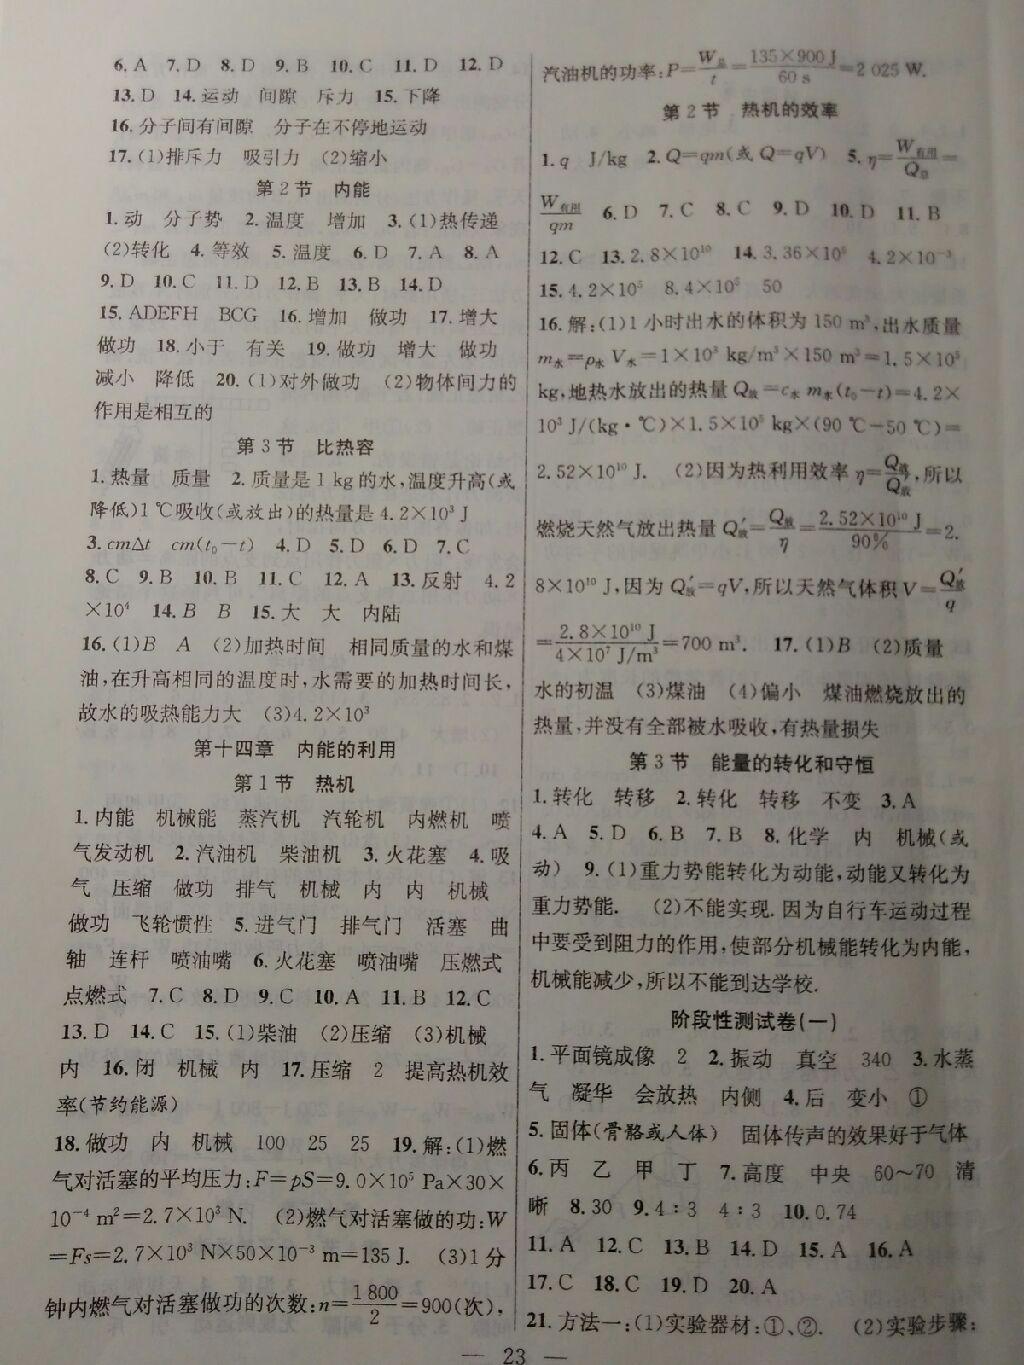 6. A 7. D 8. D 9. B 10. C 11. D 12. D
13. D 14. 运动 间隙 斥力 15. 下降
16. 分子间有间隙 分子在不停地运动
17. (1)排斥力 吸引力 (2)缩小
第2节 内能
1. 动 分子势 2. 温度 增加 3. (1)热传递
(2)转化 4. 等效 5. 温度 6. D 7. A 8. A
9. D 10. C 11. D 12. B 13. B 14. D
15. ADEFH BCG 16. 增加 做功 17. 增大
做功 18. 小于 有关 19. 做功 增大 做功
减小 降低 20. (1)对外做功 (2)物体间力的
作用是相互的
第3节 比热容
1. 热量 质量 2. 质量是1 kg的水,温度升高(或
降低)1 ℃吸收(或放出)的热量是4.2×10³ J
3. cmΔt cm(t₀−t) 4. D 5. D 6. D 7. C
8. C 9. B 10. B 11. C 12. A 13. 反射 4.2
×10⁴ 14. B B 15. 大 大 内陆
16. (1)B A (2)加热时间 相同质量的水和煤
油,在升高相同的温度时,水需要的加热时间长,
故水的吸热能力大 (3)4.2×10³
第十四章 内能的利用
第1节 热机
1. 内能 机械能 蒸汽机 汽轮机 内燃机 喷
气发动机 2. 汽油机 柴油机 3. 火花塞 4. 吸
气 压缩 做功 排气 机械 内 内 机械
做功 飞轮惯性 5. 进气门 排气门 活塞 曲
轴 连杆 喷油嘴 6. 火花塞 喷油嘴 压燃式
点燃式 7. C 8. D 9. C 10. A 11. B 12. C
13. D 14. C 15. (1)柴油 (2)压缩 (3)机械
内 16. 闭 机械 内 17. 压缩 2 提高热机效
率(节约能源)
18. 做功 内 机械 100 25 25 19. 解:(1)燃
气对活塞的平均压力:F=pS=9.0×10⁵ Pa×30×
10⁻⁴ m²=2.7×10³ N. (2)燃气对活塞做的功:W
=Fs=2.7×10³ N×50×10⁻³ m=135 J. (3)1分
钟内燃气对活塞做功的次数:n=1 800/2=900(次),
汽油机的功率:P=W总/t=135×900 J/60 s=2 025 W.
第2节 热机的效率
1. q J/kg 2. Q=qm(或Q=qV) 5. η=W有用/Q总=
W有用/qm 6. D 7. C 8. C 9. D 10. D 11. B
12. C 13. 2.8×10¹⁰ 14. 3.36×10⁵ 4.2×10⁻³
15. 4.2×10⁵ 8.4×10⁵ 50
16. 解:(1)1小时出水的体积为150 m³,出水质量
m水=ρ水V水=1×10³ kg/m³×150 m³=1.5×10⁵
kg,地热水放出的热量Q放=c水m水(t₀−t)=4.2×
10³ J/(kg·℃)×1.5×10⁵ kg×(90 ℃−50 ℃)=
2.52×10¹⁰ J. (2)因为热利用效率η= ,所以
燃烧天然气放出热量Q′放=Q放/η=2.52×10¹⁰ J/90%=2.
8×10¹⁰ J,因为Q′放=qV,所以天然气体积V=Q′放/q
=2.8×10¹⁰ J/4×10⁷ J/m³=700 m³. 17. (1)B (2)质量
水的初温 (3)煤油 (4)偏小 煤油燃烧放出的
热量,并没有全部被水吸收,有热量损失
第3节 能量的转化和守恒
1. 转化 转移 2. 转化 转移 不变 3. A
4. A 5. D 6. B 7. B 8. 化学 内 机械(或
动) 9. (1)重力势能转化为动能,动能又转化为
重力势能. (2)不能实现. 因为自行车运动过程
中要受到阻力的作用,使部分机械能转化为内能,
机械能减少,所以不能到达学校.
阶段性测试卷(一)
1. 平面镜成像 2 2. 振动 真空 340 3. 水蒸
气 凝华 会放热 内侧 4. 后 变小 ①
5. 固体(骨骼或人体) 固体传声的效果好于气体
6. 丙 乙 甲 丁 7. 高度 中央 60～70 清
晰 8. 30 9. 4∶3 4∶3 10. 0.74
11. A 12. C 13. B 14. D 15. A 16. A
17. C 18. C 19. D 20. A
21. 方法一:(1)实验器材:①、②. (2)实验步骤:
— 23 —